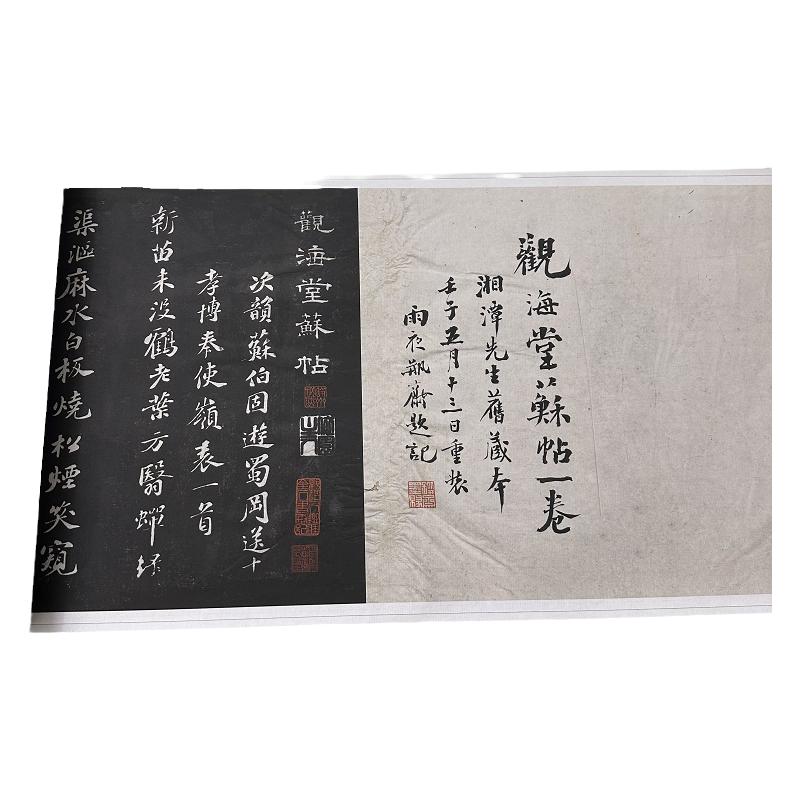 觀海堂蘇帖一卷
湘潭先生舊藏本
壬子五月十三日重裝
雨夜瓻齋題記
觀海堂蘇帖
次韻蘇伯固遊蜀岡送十
孝博奉使嶺表一首
新苗未没鶴老葉方翳蟬綠
渠漚麻水白板燒松煙笑窺